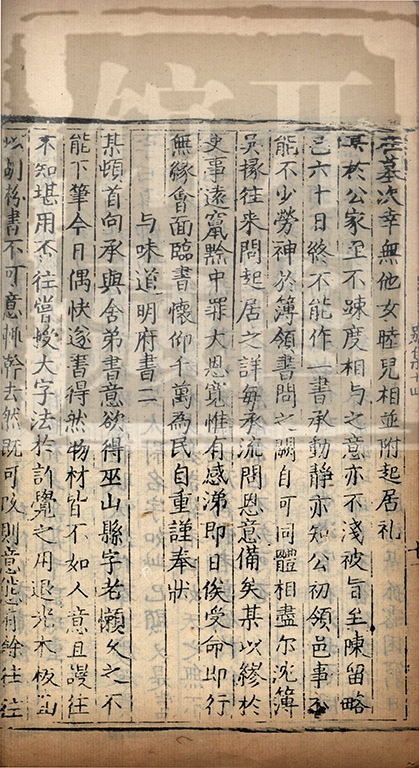 次幸無他女睦兒相並附起居礼
某於公家至不踈度相与之意亦不淺被旨至陳留略
已六十日終不能作一書承動静亦知公初領邑事不
能不少勞神於簿領書問之闕自可同體相盡尔沈簿
吳掾往来問起居之詳每承流問恩意備矣某以繆於
史事遠竄黔中罪大恩寛惟有感涕即日俟受命即行
無緣會面臨書懐仰千萬為民自重謹奉狀
与味道明府書二
某頓首向承與舎弟書意欲得巫山縣字老懶久之不
能下筆今日偶快遂書得然物材皆不如人意且謾往
不知堪用不往嘗受大字法於許覺之用退光木板
書不可意幹去然既可改則意態有餘往往